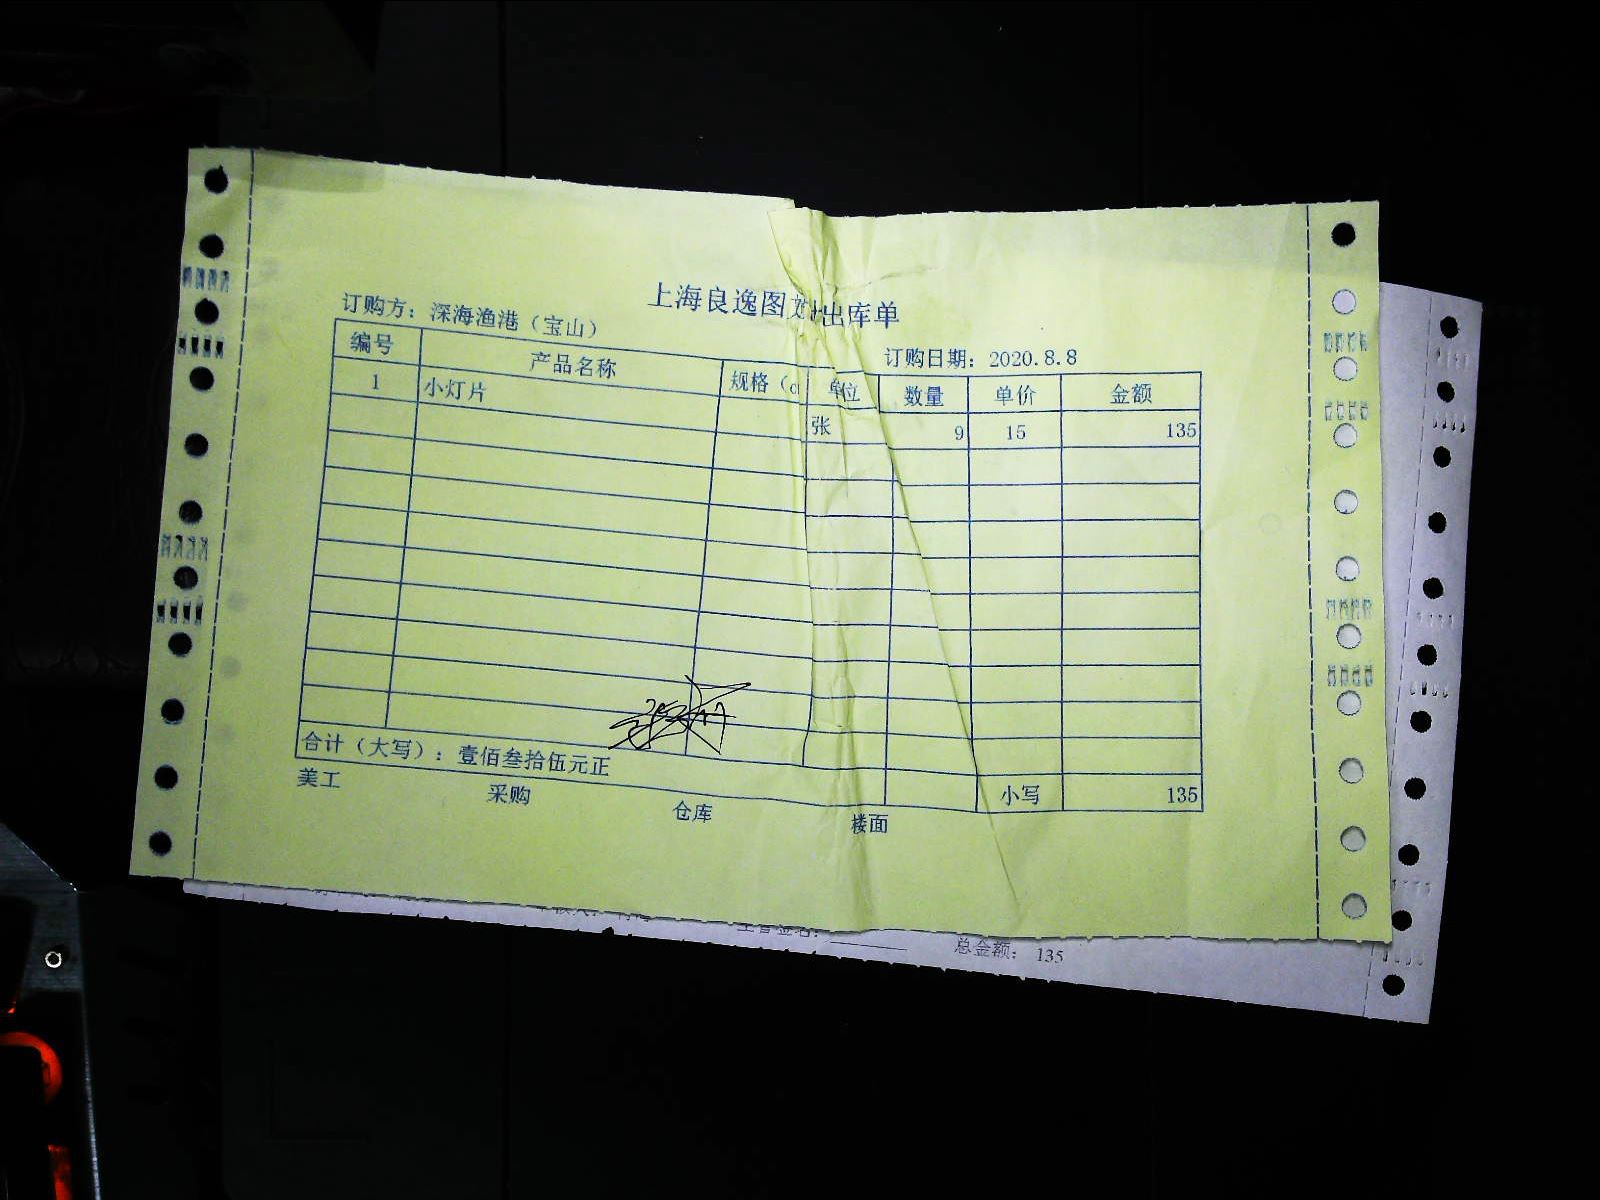 上海良逸图文出库单
订购方：深海渔港（宝山）
订购日期：2020.8.8
编号 产品名称 规格（c 单位 数量 单价 金额
1 小灯片 张 9 15 135
合计（大写）：壹佰叁拾伍元正 小写 135
美工 采购 仓库 楼面
总金额： 135